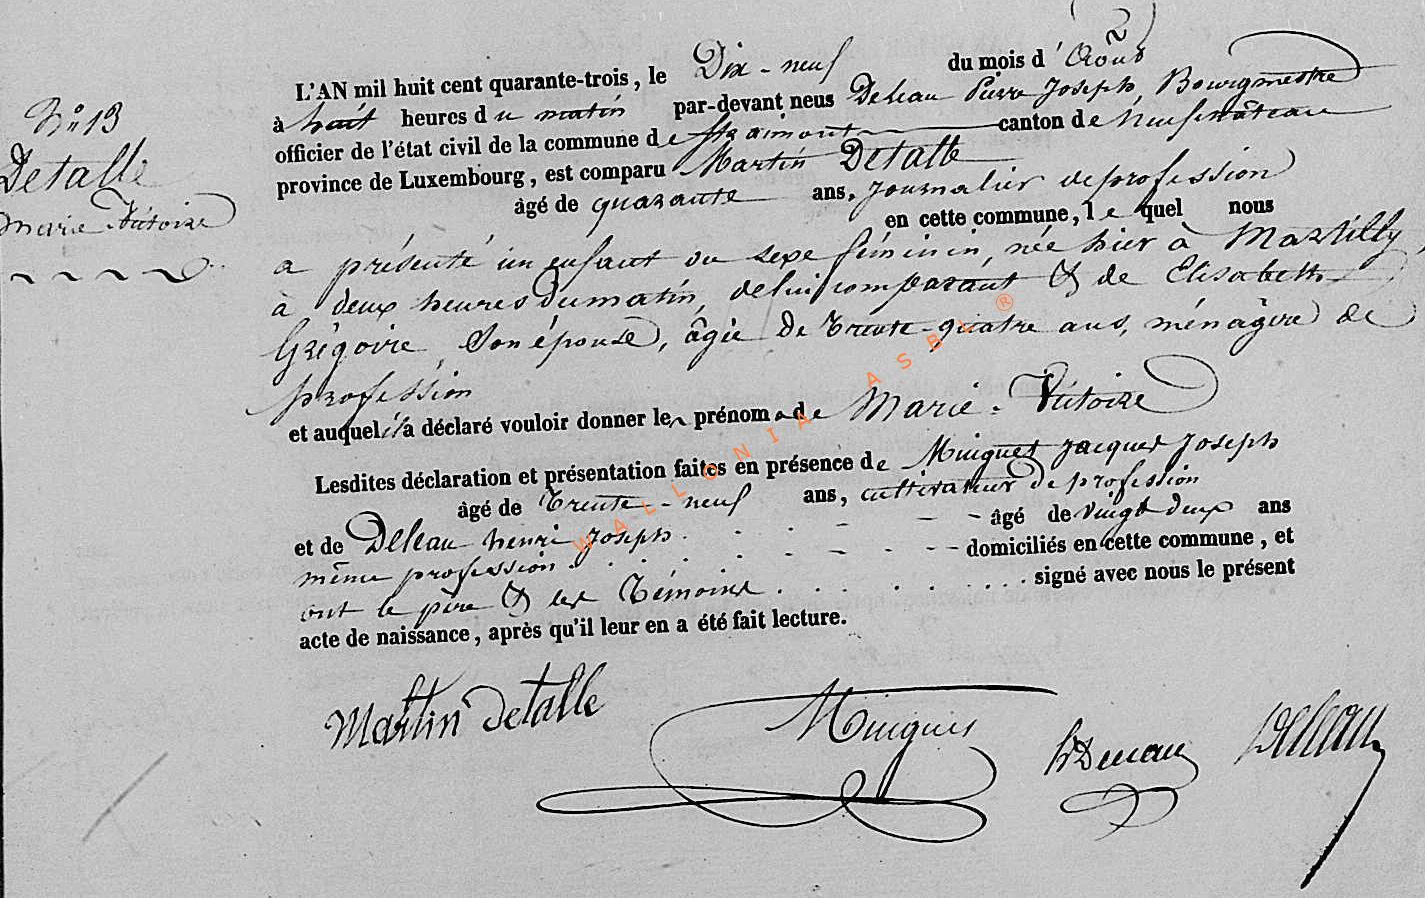 N° 13
Detalle
Marie Victoire
L'AN mil huit cent quarante-trois, le Dix-neuf du mois d'Août
à huit heures du matin par-devant nous Deleau Pierre Joseph, Bourgmestre
officier de l'état civil de la commune de Straimont canton de neufchâteau
province de Luxembourg, est comparu Martin Detalle
âgé de quarante ans, journalier de profession
en cette commune, lequel nous
a présenté un enfant du sexe féminin, née hier à Martilly,
à deux heures du matin, de lui comparant & de Elisabeth
Grégoire, son épouse, âgée de trente-quatre ans, ménagère de
profession
et auquel il a déclaré vouloir donner les prénoms de Marie-Victoire
Lesdites déclaration et présentation faites en présence de Muiguet Jacques Joseph
âgé de trente-neuf ans, cultivateur de profession
et de Deleau henri Joseph âgé de vingt deux ans
même profession domiciliés en cette commune, et
ont le père & les témoins signé avec nous le présent
acte de naissance, après qu'il leur en a été fait lecture.
Martin detalle
hDeleau
Deleau
WALLONIA ASBL ®